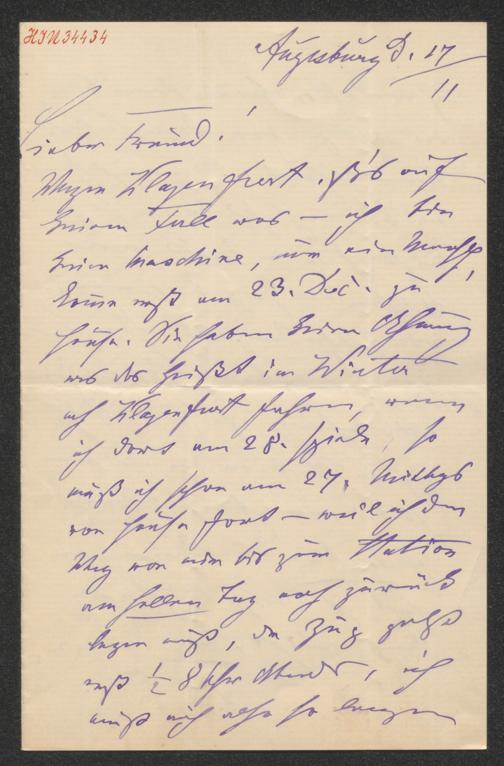 HIN 34434
Augsburg d. 17/11
Lieber Freund!
Wegen Klagenfurt ists auf
keinen Fall was – ich bin
keine Maschine, um ein Mensch,
komme erst am 23. Dec. zu
Hause. Sie haben keine Ahnung
was das heißt im Winter
nach Klagenfurt fahren, wenn
ich dort am 28. spiele, so
muß ich schon am 27. Mittags
von Hause fort – weil ich den
Weg von mir bis zum Station
am hellen Tag noch zurück
legen muß, der Zug geht
erst ½ 8 Uhr Abends, ich
muß mich also so lange